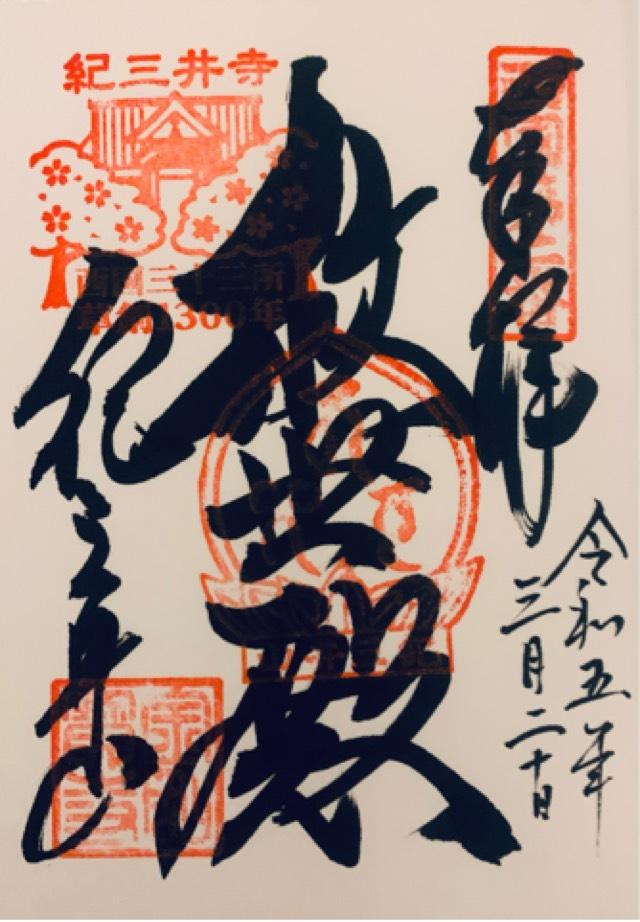 奉拝
西国第二番
令和五年
三月二十日
救世殿
紀三井寺
紀三井寺
西国三十三所
草創1300年